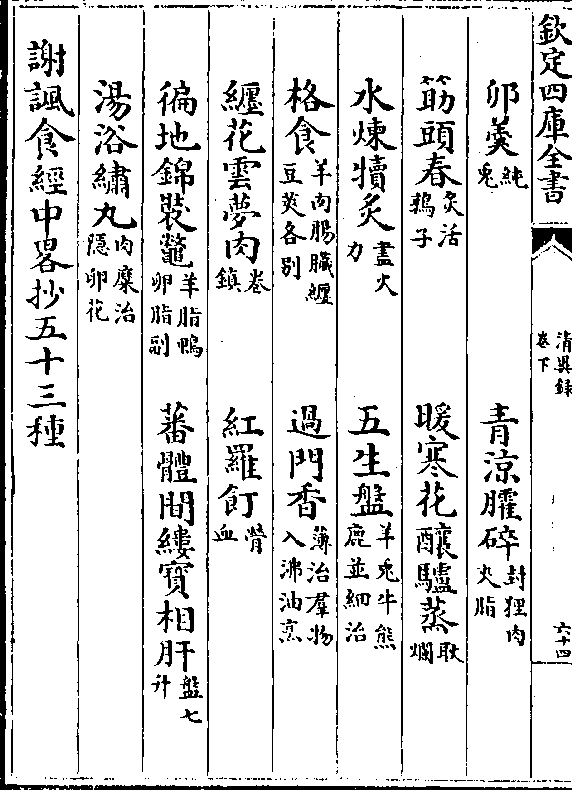 欽定四庫全書
清異録
卷下
六十四
卯羹純兎
青涼臛碎封狸肉夾脂
筯頭春炙活鶉子
暖寒花釀驢蒸耿爛
水煉犢炙盡火力
五生盤羊兎牛熊鹿並細治
格食羊肉腸臓纒豆莢各别
過門香薄治羣物入沸油烹
纒花雲夢肉卷鎮
紅羅飣膋血
徧地錦裝鼈羊脂鴨卵脂副
蕃體間縷寶相肝盤七升
湯浴繡丸肉糜治隠卵花
謝諷食經中畧抄五十三種